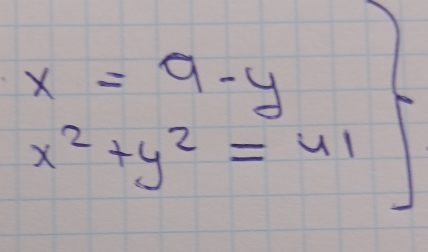 x = 9 - y
x² + y² = 41